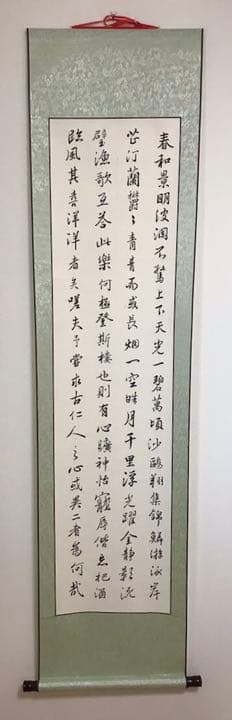 春和景明波瀾不驚上下天光一碧萬頃沙鷗翔集錦鱗游泳岸
芷汀蘭鬱〻青青而或長烟一空皓月千里浮光躍金靜影沉
璧漁歌互答此樂何極登斯樓也則有心曠神怡寵辱偕忘把酒
臨風其喜洋洋者矣嗟夫予嘗求古仁人之心或異二者為何哉